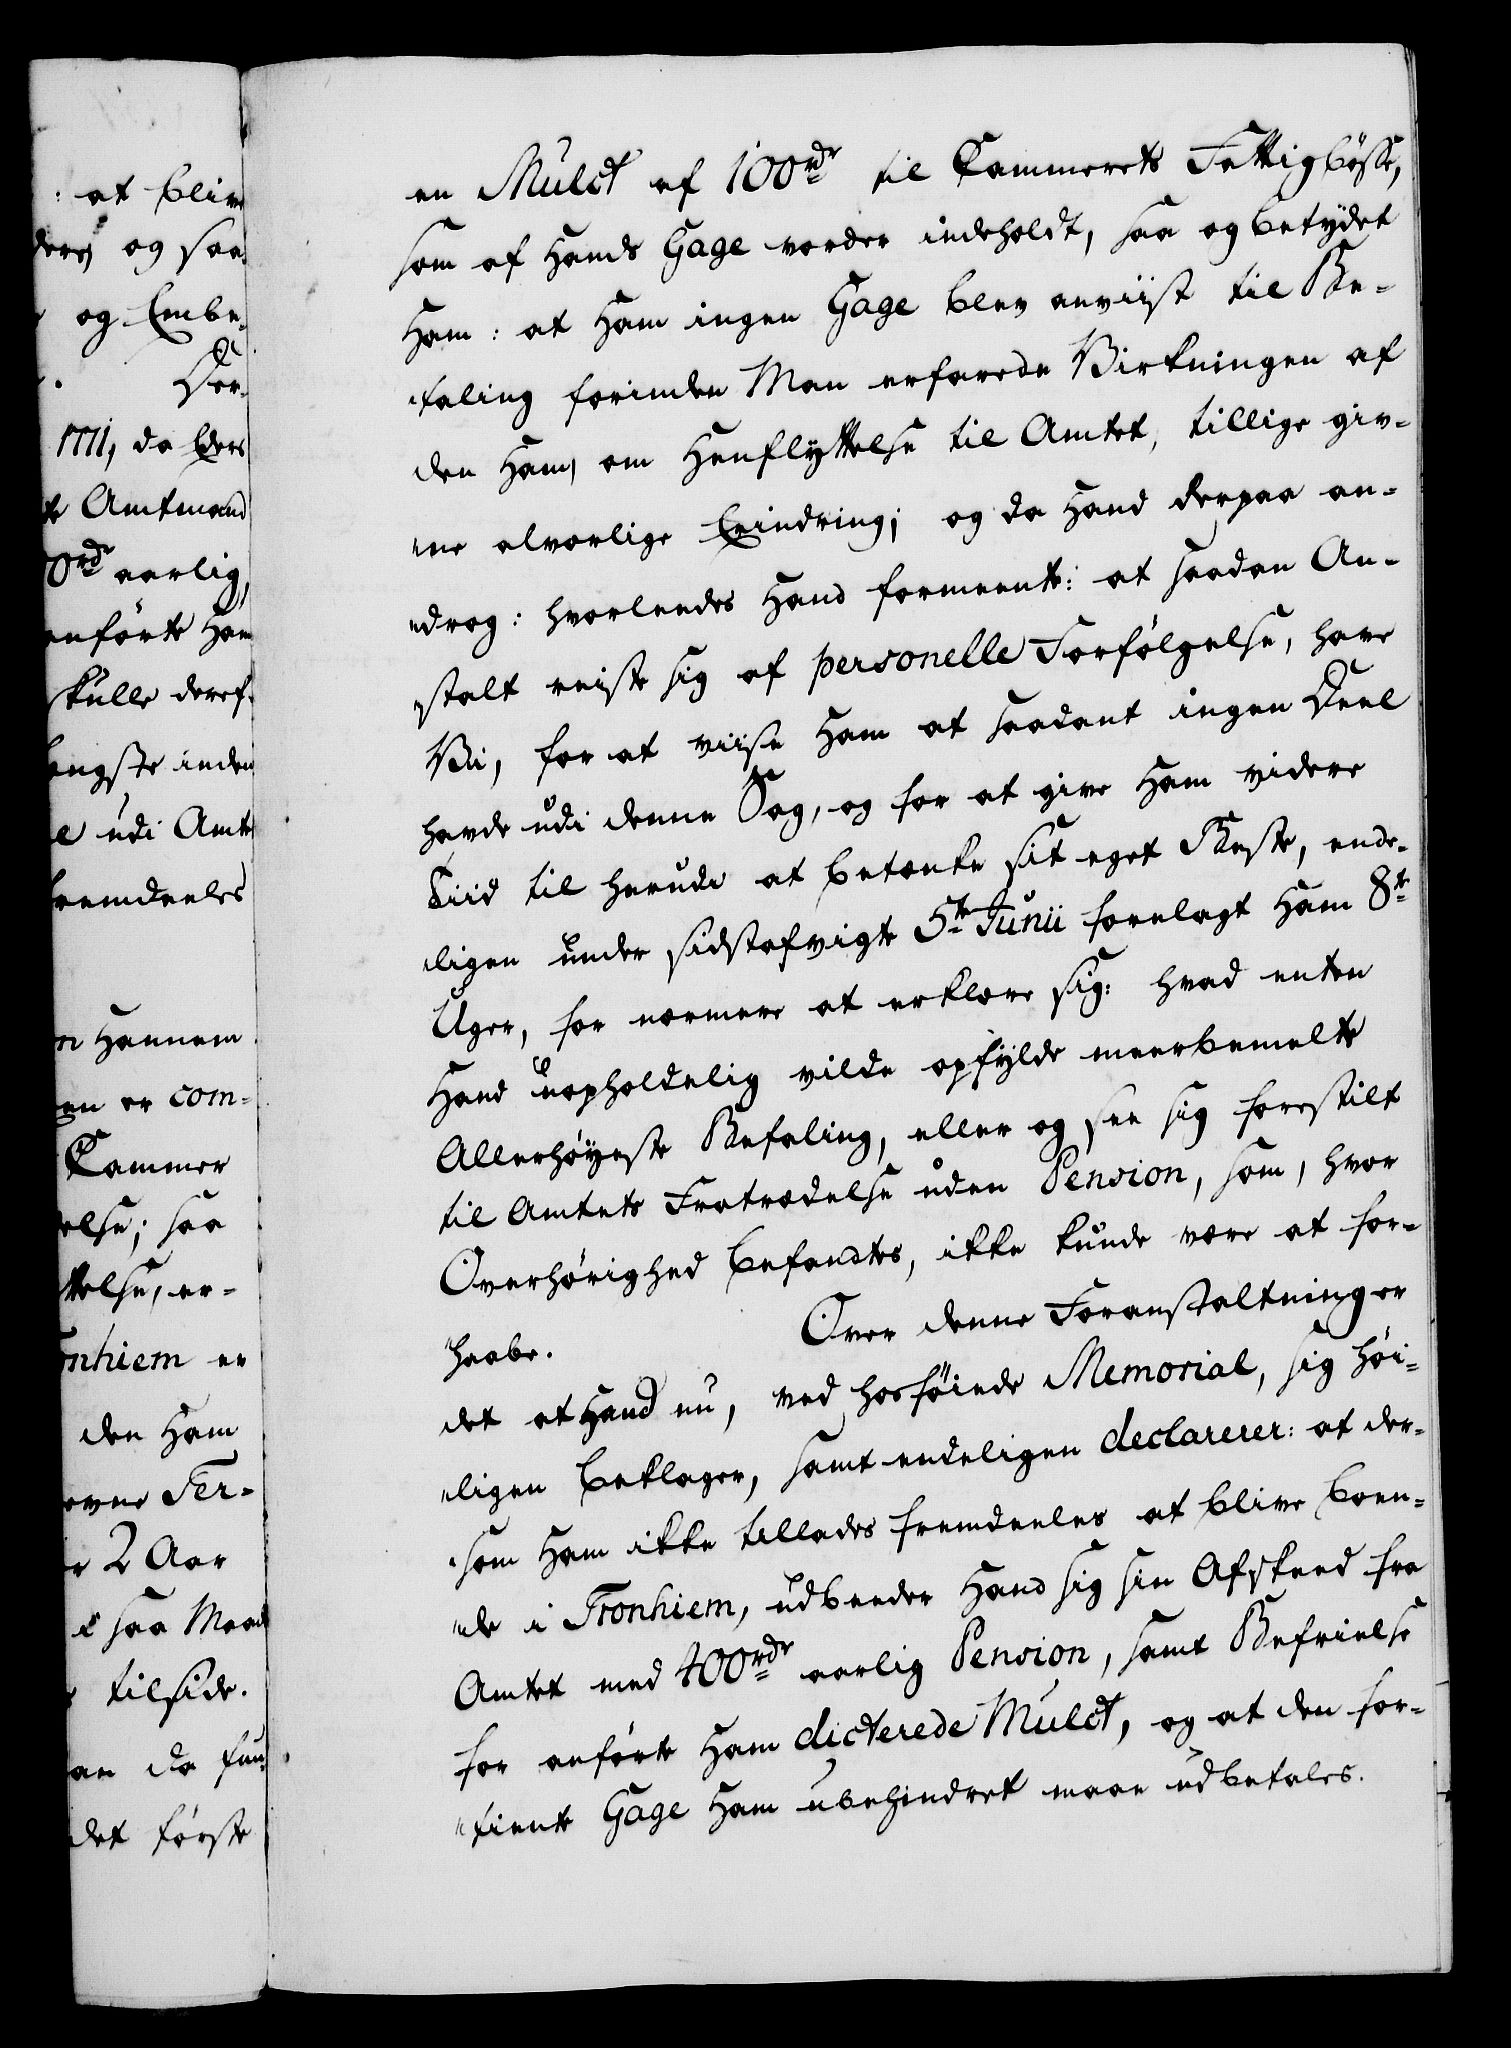 : at blive
ders og saa
og Embe-
Der-
1771, da Eders
te Amtmand
0rdr aarlig,
anførte Ham
skulle deref-
længste inden
e udi Amte
fremdeeles
n Hannem
en er com-
Kammer
else; saa
ttelse, er-
onhiem er
den Ham
evne Ter-
r 2 Aar
t saa Maade
tilside.
an da fun-
det første
en Mulct af 100rdr til Kammerets Fattigbøsse,
som af Hands Gage vorder indeholdt, saa og betydet
Ham: at Ham ingen Gage blev anviist til Be-
taling forinden Man erfarede Virkningen af
den Ham, om Henflyttelse til Amtet, tillige giv-
ne alvorlige Erindring; og da Hand derpaa an-
drog: hvorleedes Hand formeente: at saadan An-
stalt reiste sig af personelle Forfølgelse, have
Vi, for at viise Ham at saadant ingen Deel
havde udi denne Sag, og for at give Ham videre
Tiid til herudi at betænke sit eget Beste, ende-
ligen under sidstafvigte 5te Junii forelagt Ham 8te
Uger, for nærmere at erklære sig: hvad enten
Hand uopholdelig vilde opfylde meerbemelte
Allerhøyeste Befaling, eller og see sig forestilt
til Amtets Fratrædelse uden Pension, som, hvor
Overhørighed befandtes, ikke kunde være at for-
haabe. Over denne Foranstaltning er
det at Hand nu, ved hosføiede Memorial, sig høi-
ligen beklager, samt endeligen declarerer: at der-
som Ham ikke tillades fremdeeles at blive boen-
de i Tronhiem, udbeeder Hand sig sin Afskeed fra
Amtet med 400rdr aarlig Pension, samt Befrielse
for anførte Ham dicterede Mulct, og at den for-
tiente Gage Ham ubehindret maae udbetales.